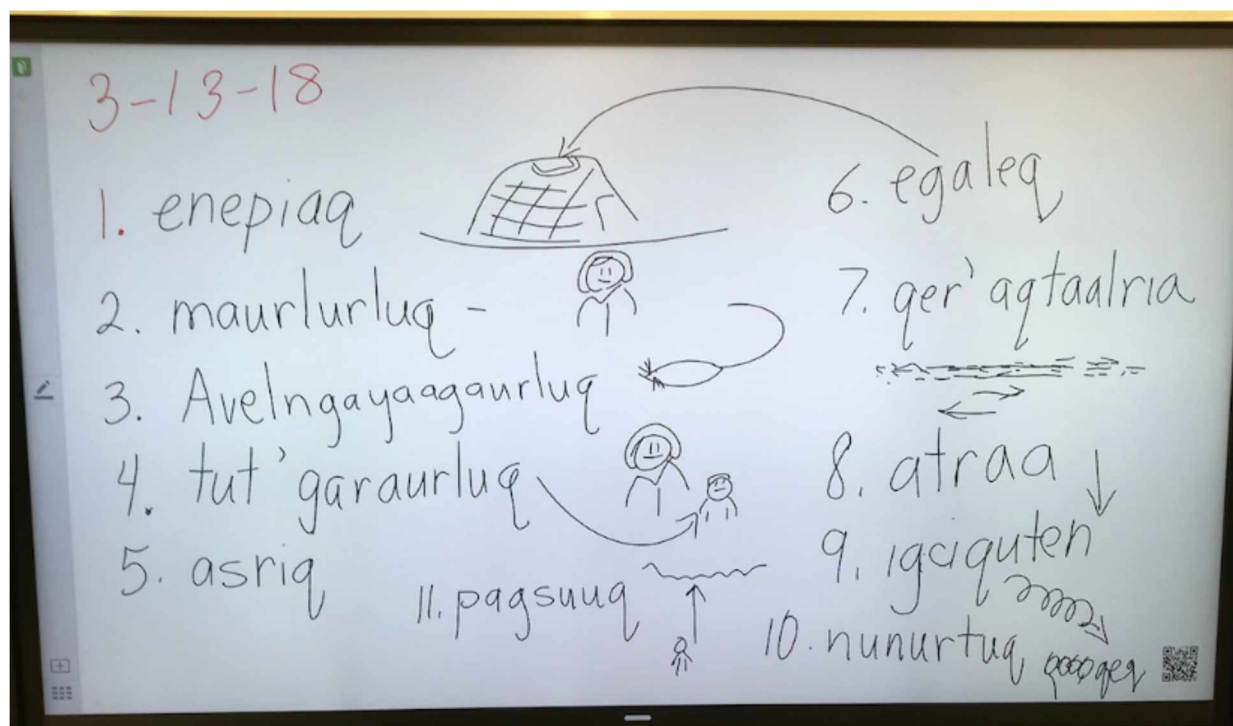 3-13-18
1. enepiaq
2. maurlurluq -
3. Avelngayaagaurluq
4. tut'garaurluq
5. asriq
6. egaleq
7. qer'aqtaalria
8. atraa
9. igciquten
10. nunurtuq
11. pagsuuq